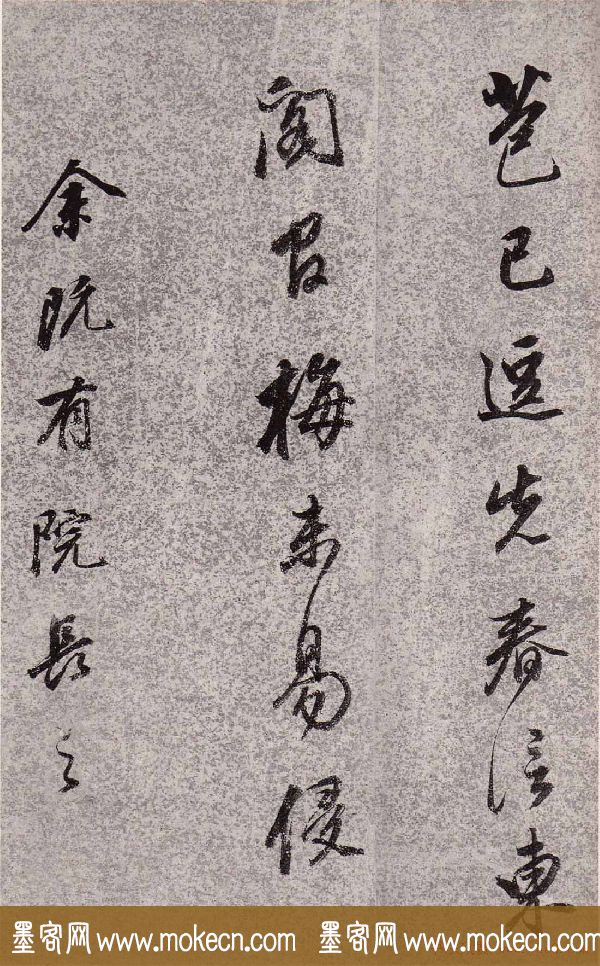 苞已逗先春信東
閣官梅未易侵
余既有院長之
墨客网 www.mokecn.com 墨客网 www.mokecn.com